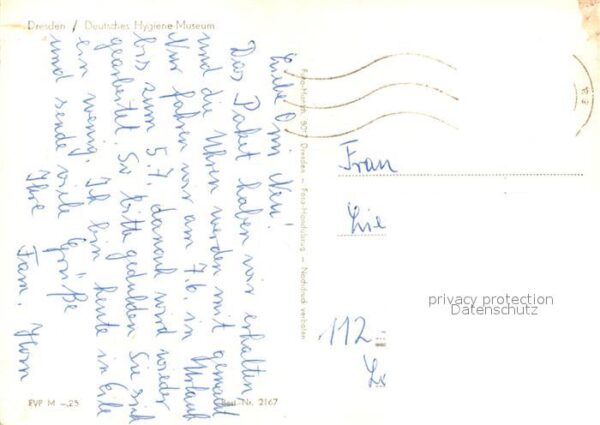 Dresden / Deutsches Hygiene-Museum
Liebe Omi Neu!
Das Paket haben wir erhalten
und die Uhren werden mit gemacht
Nur fahren wir am 7.6. in Urlaub
bis zum 5.7. danach wird wieder
gearbeitet. So bitte gedulden Sie sich
ein wenig. Ich bin heute in Eile
und sende viele Grüße
Ihre Fam. Horn
EVP M –,25
Best.-Nr. 2167
Dresden – Nachdruck verboten
Frau
privacy protection
Datenschutz
112